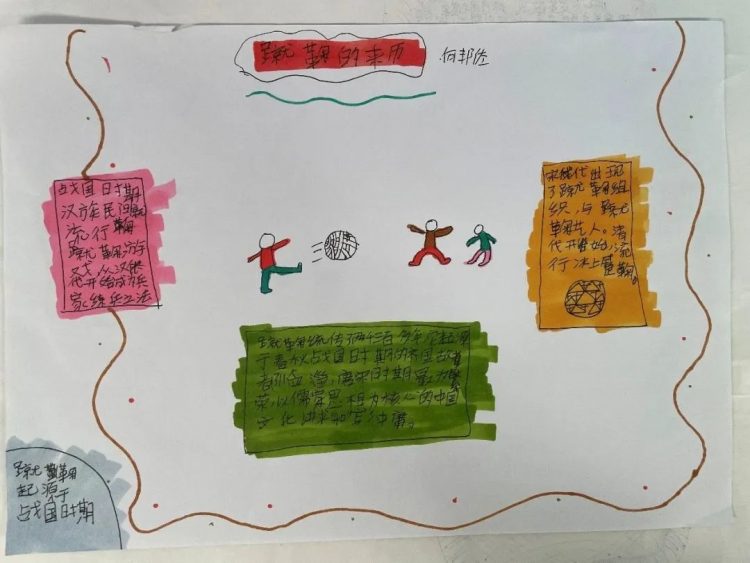 蹴鞠的来历
何邦佐
战国日时期
汉族民间就
流行鞠
蹴鞠游
戏从汉
代开始成为兵
家练兵之法
宋代出现
了蹴鞠组
织,与蹴
鞠艺人。清
代开始流
行冰上蹴鞠。
蹴鞠流传两千三百多年起源
于春秋战国时期的齐国故
都临淄,唐宋时期最为
荣以儒家思想为核心的中国
文化讲求
蹴鞠
起源于
战国时期